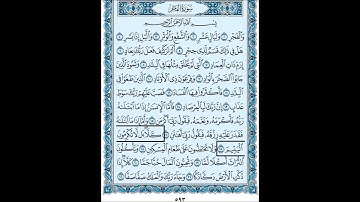 سُورَةُ الفَجْرِ
بِسْمِ اللَّهِ الرَّحْمَٰنِ الرَّحِيمِ
وَالْفَجْرِ ١ وَلَيَالٍ عَشْرٍ ٢ وَالشَّفْعِ وَالْوَتْرِ ٣ وَاللَّيْلِ إِذَا يَسْرِ ٤
هَلْ فِي ذَٰلِكَ قَسَمٌ لِذِي حِجْرٍ ٥ أَلَمْ تَرَ كَيْفَ فَعَلَ رَبُّكَ بِعَادٍ ٦
إِرَمَ ذَاتِ الْعِمَادِ ٧ الَّتِي لَمْ يُخْلَقْ مِثْلُهَا فِي الْبِلَادِ ٨ وَثَمُودَ الَّذِينَ
جَابُوا الصَّخْرَ بِالْوَادِ ٩ وَفِرْعَوْنَ ذِي الْأَوْتَادِ ١٠ الَّذِينَ طَغَوْا فِي
الْبِلَادِ ١١ فَأَكْثَرُوا فِيهَا الْفَسَادَ ١٢ فَصَبَّ عَلَيْهِمْ رَبُّكَ سَوْطَ
عَذَابٍ ١٣ إِنَّ رَبَّكَ لَبِالْمِرْصَادِ ١٤ فَأَمَّا الْإِنْسَانُ إِذَا مَا ابْتَلَاهُ
رَبُّهُ فَأَكْرَمَهُ وَنَعَّمَهُ فَيَقُولُ رَبِّي أَكْرَمَنِ ١٥ وَأَمَّا إِذَا مَا ابْتَلَاهُ
فَقَدَرَ عَلَيْهِ رِزْقَهُ فَيَقُولُ رَبِّي أَهَانَنِ ١٦ كَلَّا بَلْ لَا تُكْرِمُونَ
الْيَتِيمَ ١٧ وَلَا تَحَاضُّونَ عَلَىٰ طَعَامِ الْمِسْكِينِ ١٨ وَتَأْكُلُونَ
التُّرَاثَ أَكْلًا لَمًّا ١٩ وَتُحِبُّونَ الْمَالَ حُبًّا جَمًّا ٢٠ كَلَّا إِذَا
دُكَّتِ الْأَرْضُ دَكًّا دَكًّا ٢١ وَجَاءَ رَبُّكَ وَالْمَلَكُ صَفًّا صَفًّا ٢٢
٥٩٣